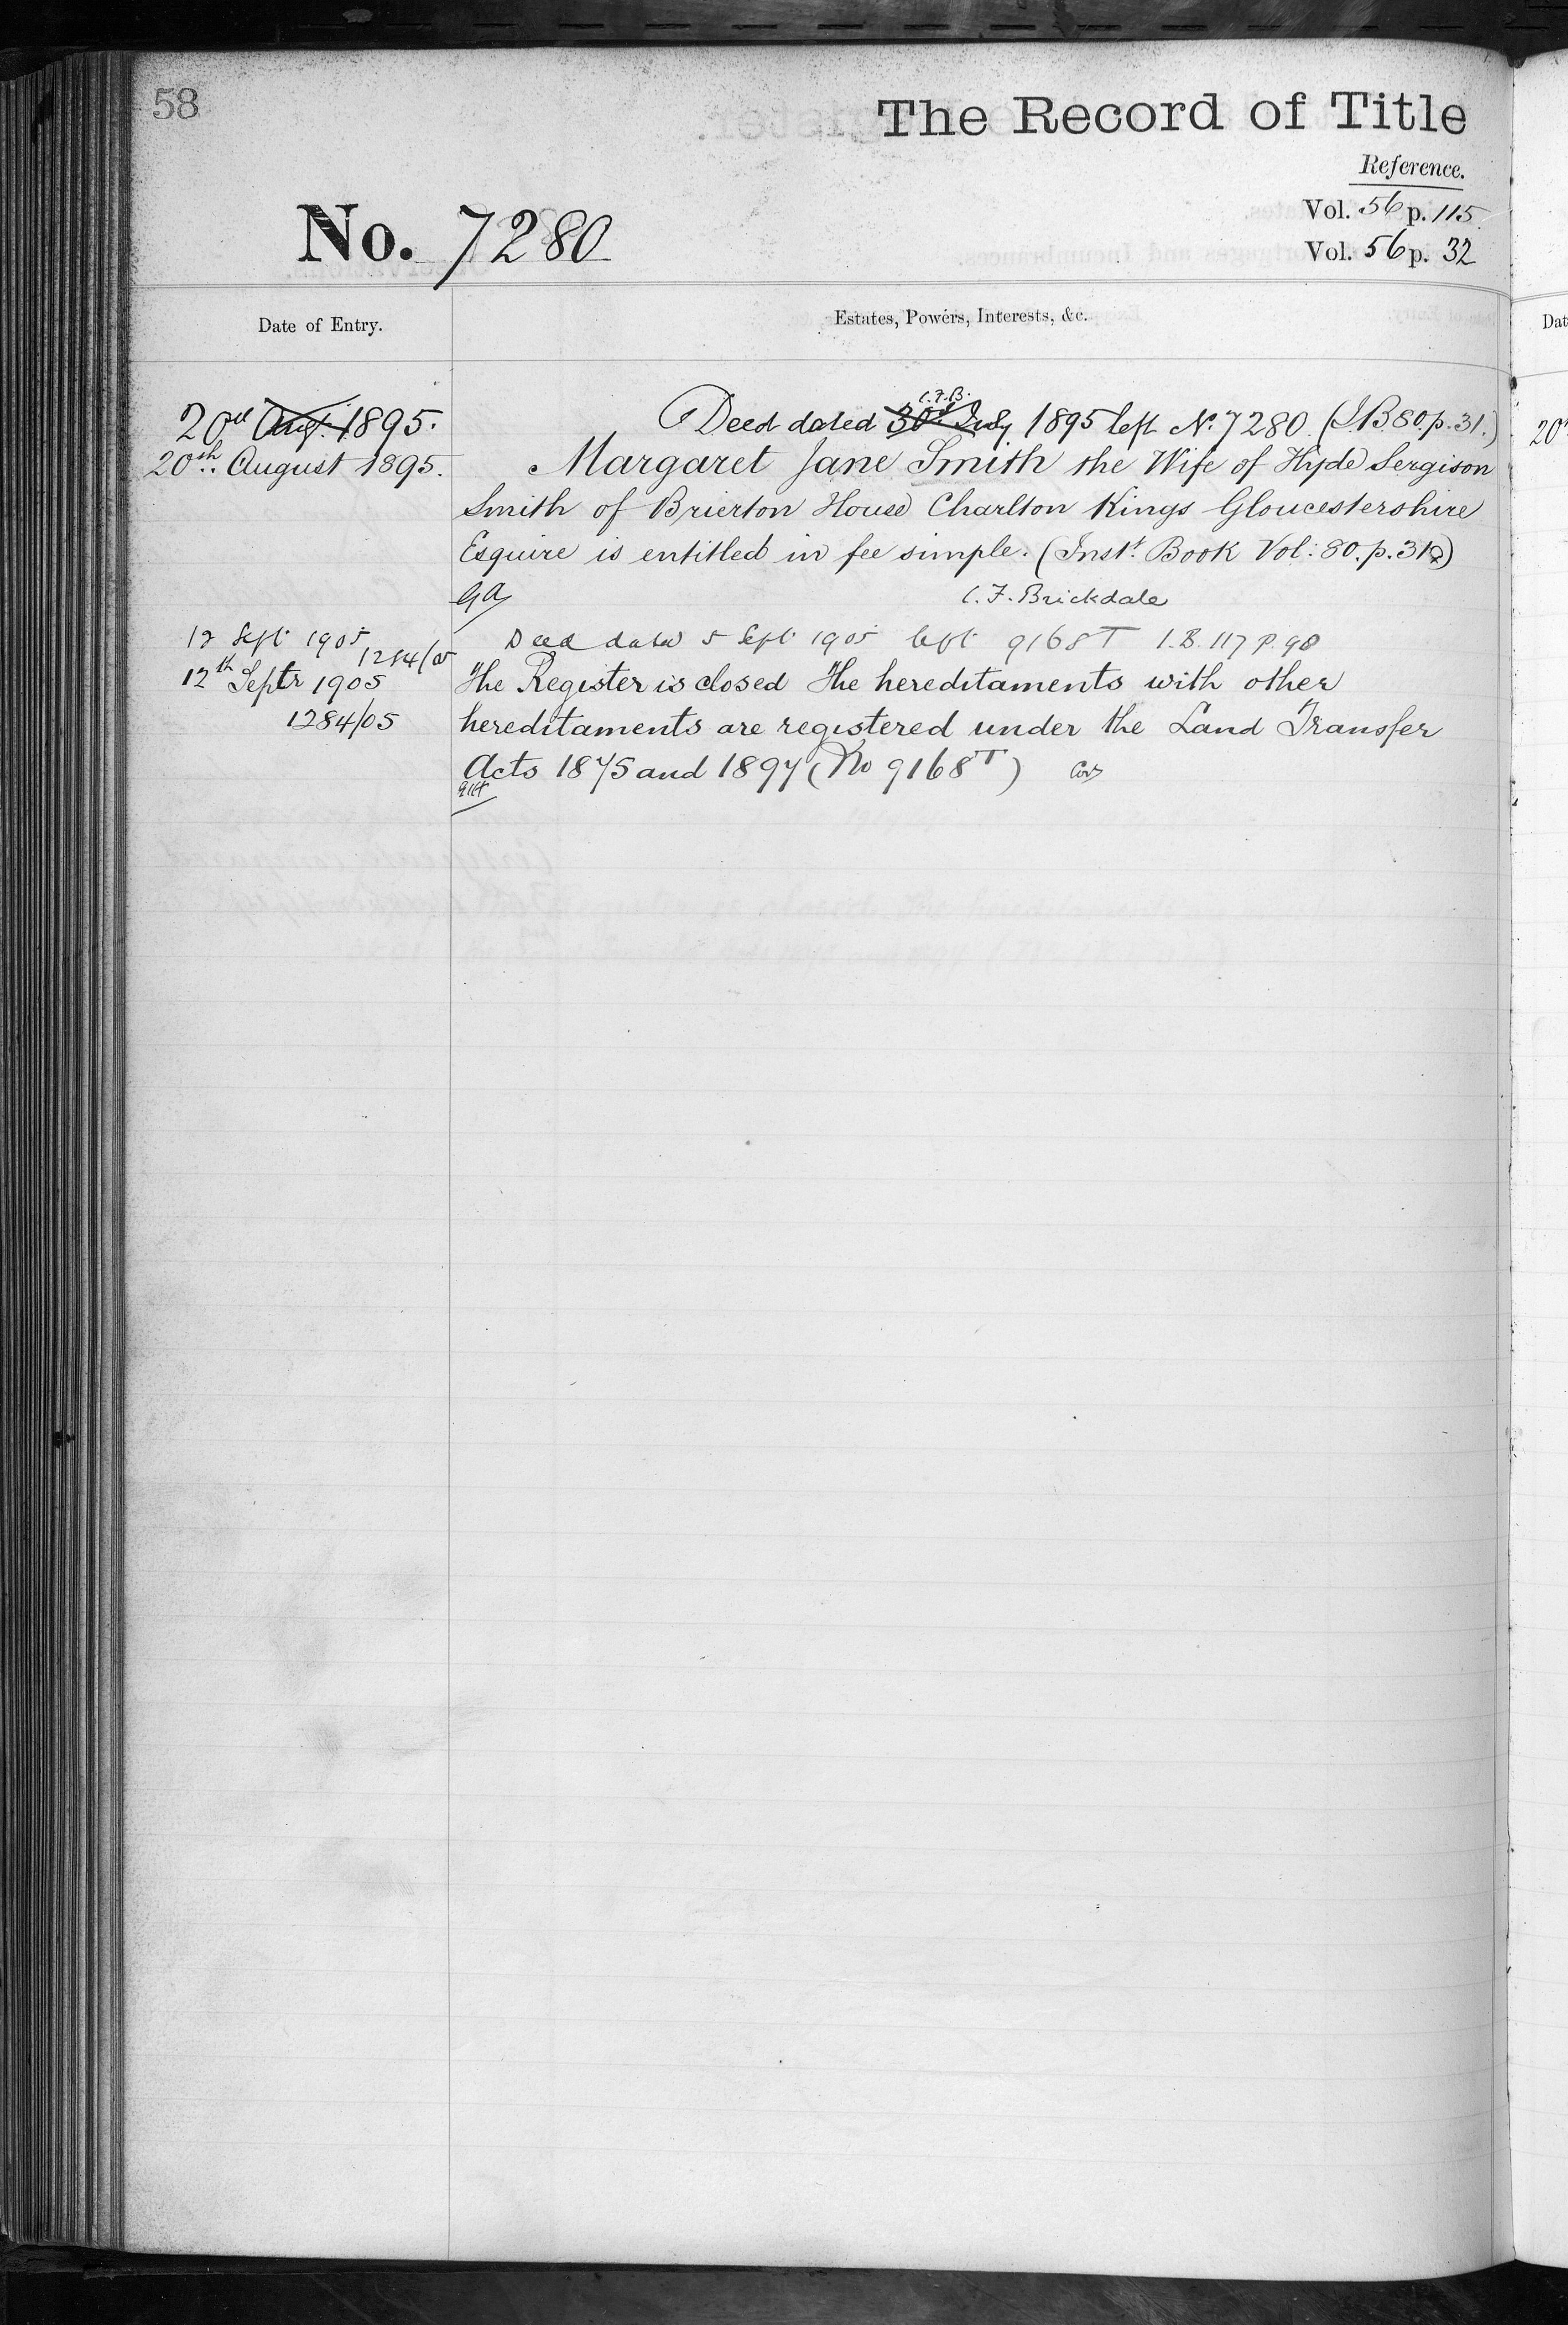 58
The Record of Title
Reference.
Vol. 56 p. 115
No. 7280
Vol. 56 p. 32
Date of Entry.
Estates, Powers, Interests, &c.
C.F.B.
20th Aug. 1895. Deed dated 30th July 1895 left No. 7280. (I.B. 80. p. 31.)
20th. August 1895. Margaret Jane Smith the Wife of Hyde Sergison
Smith of Brierton House Charlton Kings Gloucestershire
Esquire is entitled in fee simple. (Inst. Book Vol: 80. p. 31)
GA C.F. Brickdale
12 Sept 1905 1284/05 Deed dated 5 Sept 1905 left 9168T I.B. 117 p. 98
12th Septr 1905 The Register is closed The hereditaments with other
1284/05 hereditaments are registered under the Land Transfer
Acts 1875 and 1897 (No 9168T)
Dat
20